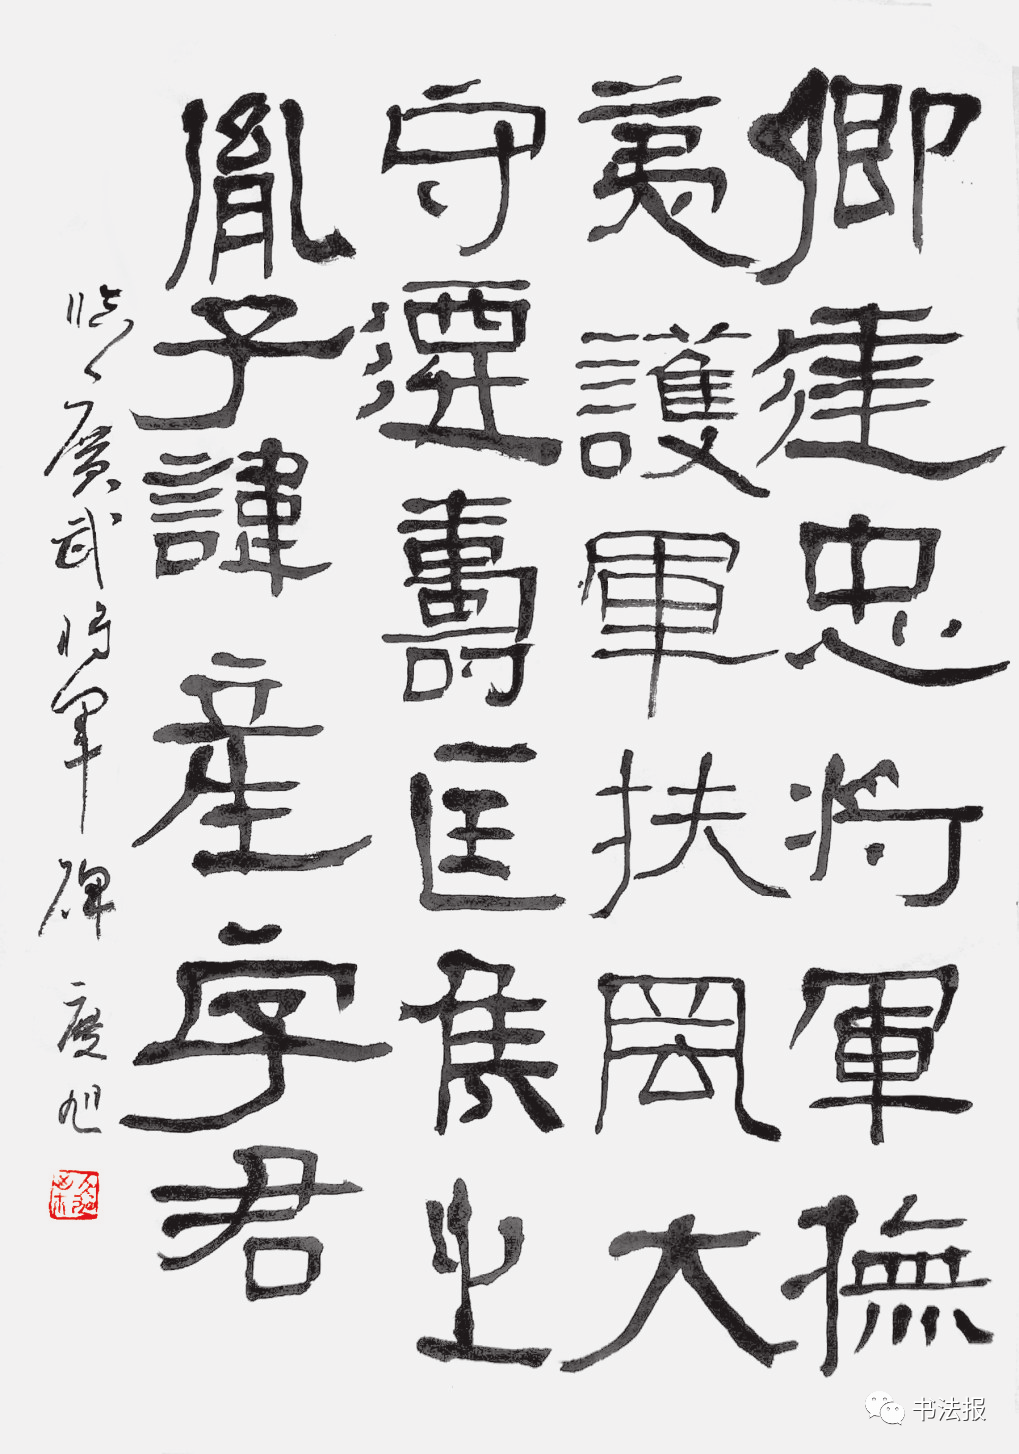 卿建忠将軍撫
夷護軍扶風大
守遷壽匡侯之
胤子諱産字君
临廣武将軍碑 慶旭
书法报